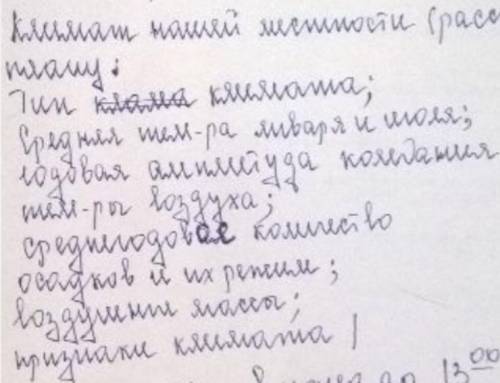 Климат нашей местности (расс
плану:
Тип клима климата;
Средняя тем-ра января и июля;
годовая амплитуда колебания
тем-ры воздуха;
среднегодовое количество
осадков и их режим;
воздушные массы;
признаки климата )
до 13 00